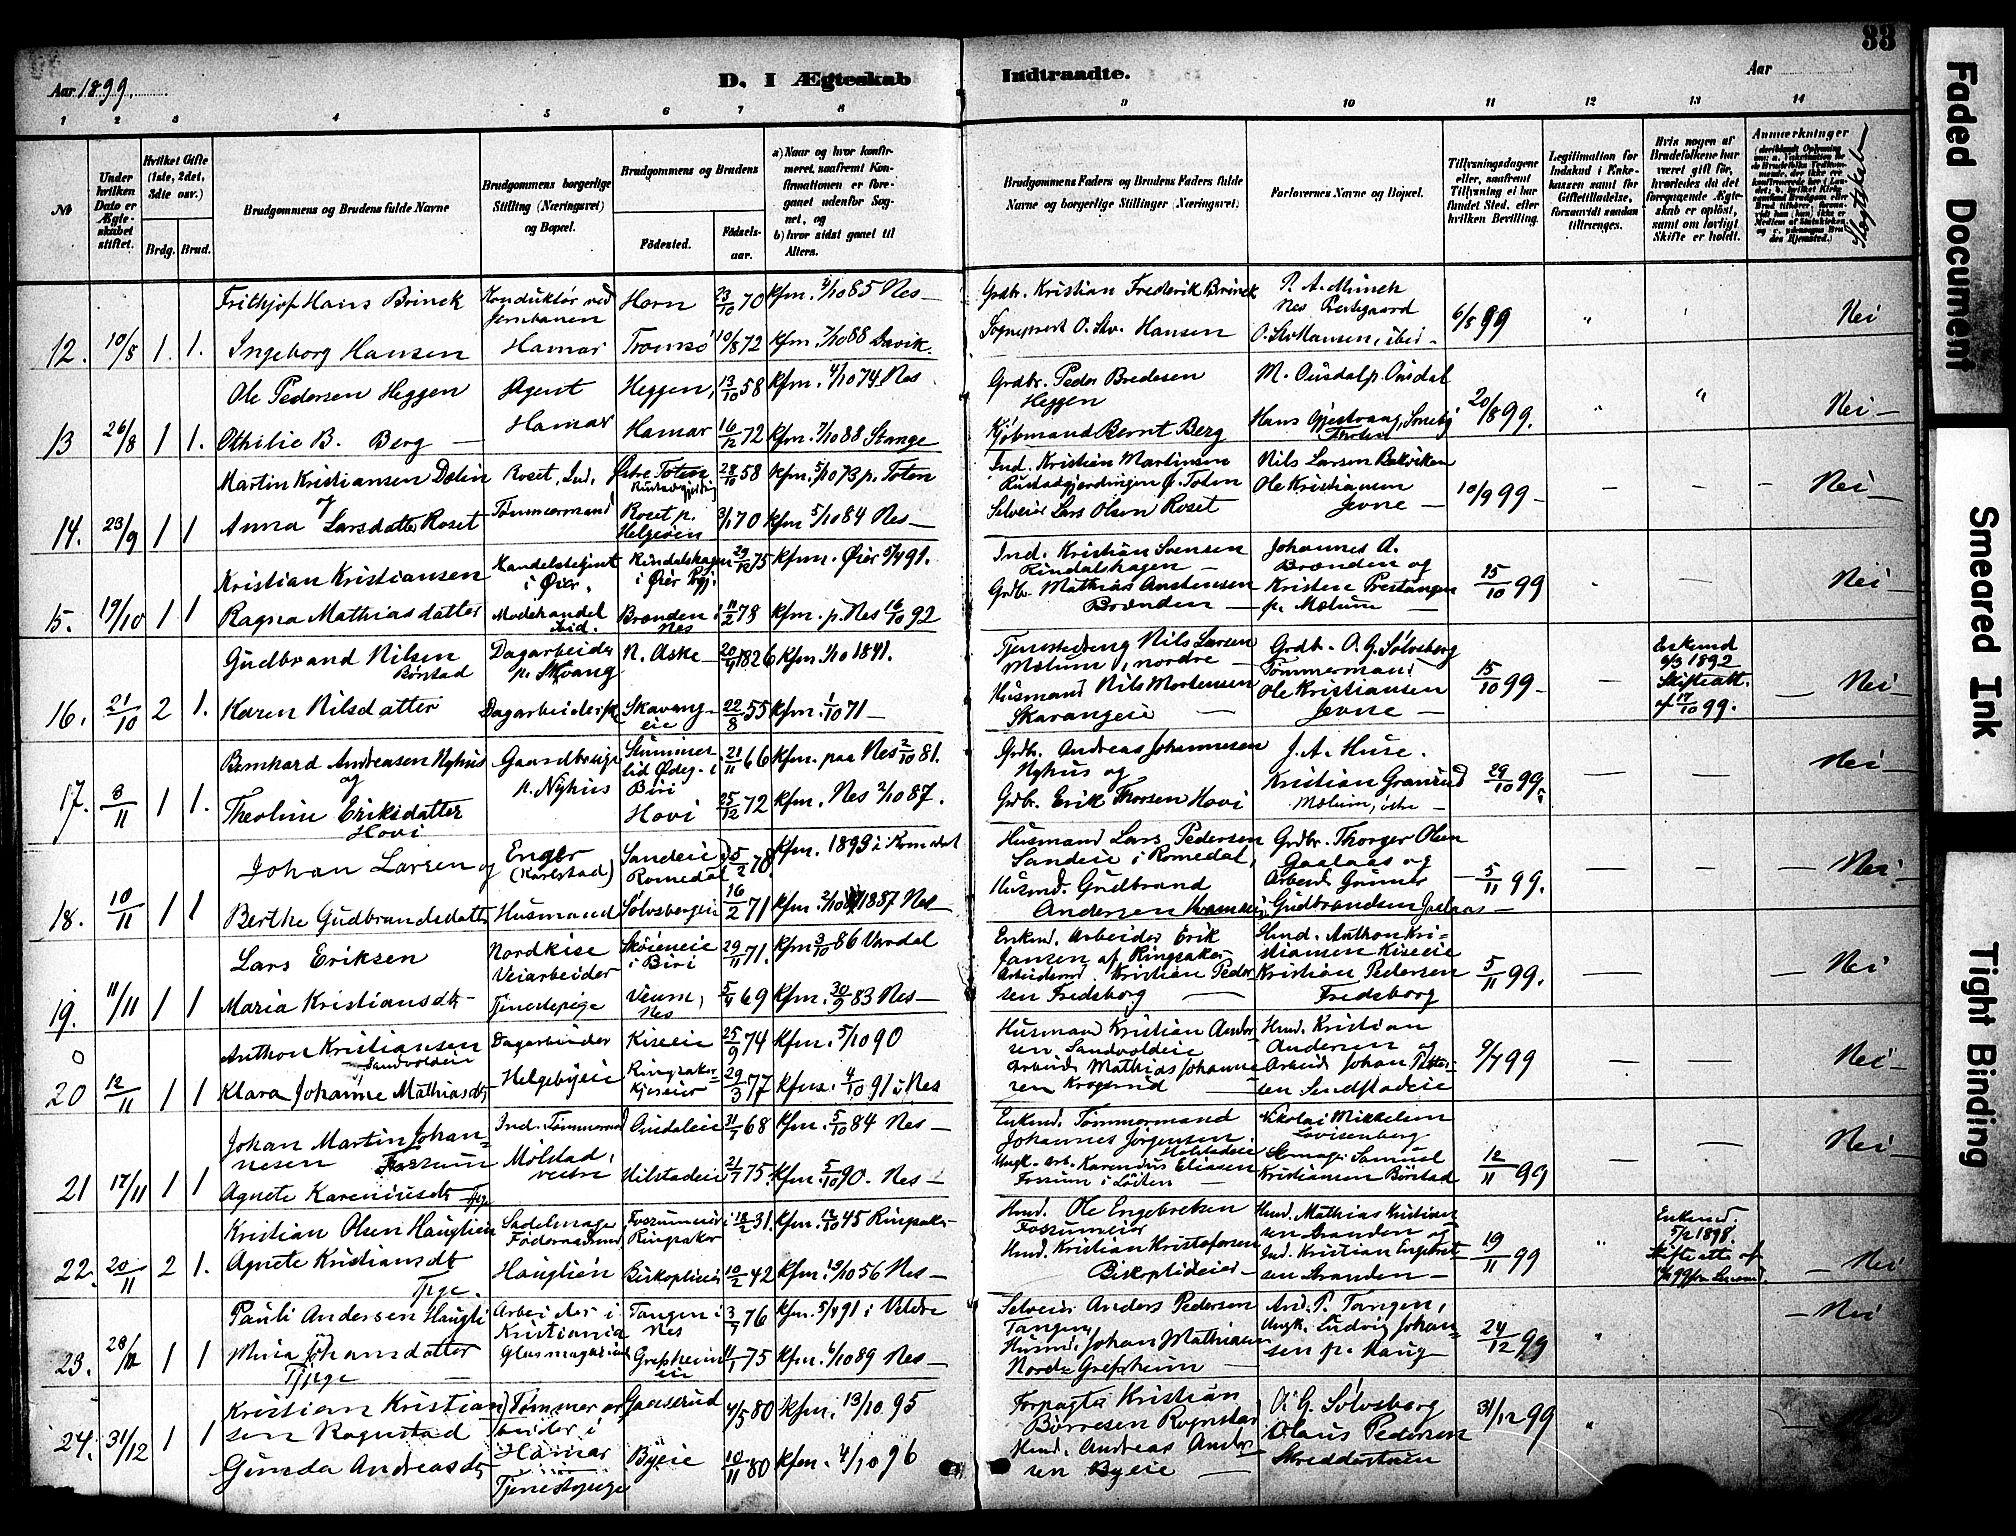 33
Aar 1899.
D. I Ægteskab Indtraadte.
Aar
1 2 3 4 5 6 7 8 9 10 11 12 13 14
No
Under hvilken Dato er Ægteskabet stiftet.
Hvilket Gifte (1ste, 2det, 3die osv.)
Brdg. Brud.
Brudgommens og Brudens fulde Navne
Brudgommens borgerlige Stilling (Næringsvei) og Bopæl.
Brudgommens og Brudens
Fødested. Fødselsaar.
a) Naar og hvor konfirmeret, saafremt Konfirmationen er foregaaet udenfor Sognet, og
b) hvor sidst gaaet til Alters.
Brudgommens Faders og Brudens Faders fulde Navne og borgerlige Stillinger (Næringsvei).
Forlovernes Navne og Bopæl.
Tillysningsdagene eller, saafremt Tillysning ei har fundet Sted, efter hvilken Bevilling.
Legitimation for Indskud i Enkekassen samt for Giftetilladelse, forsaavidt saadan tiltrænges.
Hvis nogen af Brudefolkene har været gift før, hvorledes da det foregaaende Ægteskab er opløst, samt om lovligt Skifte er holdt.
Anmærkninger
Slægtskab
12. 10/8 1. 1.
Frithjof Hans Brinck
Ingeborg Hansen
Konduktør ved Jernbanen
Hamar
Horn 23/10 70 kfm. 4/10 85 Nes
Tromsø 10/8 72 kfm. 7/10 88 Davik.
Grdbr. Kristian Frederik Brinck
Sogneprest O. Stv. Hansen
P. A. Munch
Nes Prestegaard
O. Stv. Hansen, ibid.
6/8 99 Nei
13 26/8 1 1.
Ole Pedersen Heggen
Othilie B. Berg
Agent
Hamar
Heggen, 13/10 58 kfm. 4/10 74 Nes
Hamar 16/12 72 kfm. 7/10 88 Stange
Grdbr. Peder Bredesen Heggen
Kjøbmand Bernt Berg
M. Ousdal p. Ousdal
20/8 99. Nei
14. 23/9 1 1
Martin Kristiansen Dælin
og
Anna Larsdatter Roset
Roset, Ind.
Tømmermand
Østre Toten 28/10 58 kfm. 5/10 73 p. Toten
Roset p. Helgeøen 3/1 70 kfm 5/10 84 Nes
Ind. Kristian Martinsen
Rustadgjerdingen Ø. Toten
Selveier Lars Olsen Roset
Nils Larsen Bakviken
Ole Kristiansen
Jevne
10/9 99 Nei
15. 19/10 1 1
Kristian Kristiansen
Ragna Mathiasdatter
Handelsbetjent i Øier.
Modehandel ibid.
Rindalshagen i Øier Prgj. 29/12 75 kfm. Øier 5/7 91.
Brænden i Nes 11/2 78 kfm. p. Nes 16/10 92
Ind. Kristian Svensen
Rindalshagen
Grdbr. Mathias Anstensen
Brænden
Johannes A.
Brænden og
Kristen Prestangen
p. Mælum
15/10 99 Nei
16. 21/10 2 1.
Gudbrand Nilsen
Børstad
Karen Nilsdatter
Dagarbeider
p. Skvang
Dagarbeiderske
N. Aske 20/9 1826 kfm. 1/10 1841.
Skavangeie 22/8 55 kfm. 1/10 71
Tjenestedreng Nils Larsen
Mælum, nordre
Husmand Nils Mortensen
Skavangeie
Grdbr. O. G. Sølvsberg
Tømmermand
Ole Kristiansen
Jevne
15/10 99
Enkemd 6/3 1892
Skifteatt. af 17/10 99.
Nei
17. 3/11 1 1.
Bernhard Andreasen Nyhus
og
Theoline Eriksdatter
Hovi
Gaardbruger
n. Nyhus
Stummerlid Ødeg. i Biri 21/11 66 kfm. paa Nes 2/10 81.
Hovi 25/12 72 kfm. Nes 2/10 87.
Grdbr. Andreas Johannesen
Nyhus og
Grdbr. Erik Thorsen Hovi
J. A. Huse.
Kristian Granrud
Mælum, østre
29/10 99. Nei
18. 10/11 1 1
Johan Larsen og
Berthe Gudbrandsdatter
Enger (Karlstad)
Husmand
Sandeie Romedal 5/2 70. kfm. 1893 i Romedal
Sølvsbergeie 16/2 71 kfm 2/10 1887 Nes
Husmand Lars Pedersen
Sandeie i Romedal,
Husmd. Gudbrand
Andersen
Grdbr. Thorger Olsen
Gaalaas og
Arbeid. Gunner
Gudbrandsen Gaalaas
5/11 99. Nei
19. 11/11 1 1
Lars Eriksen
Maria Kristiansdt.
Nordkise
Veiarbeider
Tjenestepige
Skøieneie i Biri 29/11 71. kfm 3/10 86 Vardal
Veum, Nes 5/4 69 kfm. 30/9 83 Nes
Enkemd. Arbeider Erik
Jansen af Ringsaker
Arbeidsmd Kristian Pedersen Fredsborg
Hmd. Anthon Kristiansen Kiseeie
Kristian Pedersen
Fredsborg
5/11 99. Nei
20 12/11 1 1
Anthon Kristiansen
Sandvoldeie
Klara Johanne Mathiasdt.
Dagarbeider
Helgebyeie
Kiseeie 25/9 74 kfm. 5/10 90
Ringsaker 29/3 77 kfm. 4/10 91 i Nes
Husmand Kristian Andersen Sandvoldeie
Arbeid. Mathias Johannesen Krogerud
Hmd. Kristian
Andersen og
Arbeid. Johan Pettersen Sundstadeie
9/7 99 Nei
21 17/11 1 1
Johan Martin Johannesen Fossum
Agnete Kareniusdt. Tjpge
Ind. Tømmermand
Mølstad, vestre
Ousdaleie 31/7 68 kfm. 5/10 84 Nes
Hilstadeie 21/7 75 kfm. 5/10 90. Nes
Enkemd. Tømmermand
Johannes Jørgensen
Ungk. Arb. Karenius Eliasen
Fossum i Løiten
Nikolai Mikkelsen
Lovisenberg
Skomager Samuel
Kristiansen Børstad
12/11 99 Nei
22. 20/11 2 1.
Kristian Olsen Hauglien
Agnete Kristiansdt.
Tjpge.
Sadelmager
Føderaadsmd
Hauglien
Fossumeie i Ringsaker 18/2 31. kfm. 12/10 45 Ringsaker
Biskoplieie 10/2 42 kfm. 19/10 56 Nes
Hmd. Ole Engebretsen
Fossumeie
Hmd. Kristian Kristofersen
Biskoplideie
Hmd. Mathias Kristiansen Stranden og
Ind. Kristian Engebretsen Stranden
19/11 99
Enkemd. 5/2 1898.
Skifteatt. af
Nei
23. 28/12 1 1
Pauli Andersen Haugli
Mina Johansdatter
Tjpge
Arbeider i
Kristiania
Glasmagasin
Tangen i Nes 3/7 76 kfm. 5/7 91 i Veldre
Grefsheimeie 11/1 75 kfm. 6/10 89 Nes
Selveier Anders Pedersen
Tangen,
Husmd. Johan Mathiasen
Nordre Grefsheim
And. P. Tangen,
Ungk. Ludvig Johansen p. Haug
24/12 99 Nei
24. 31/12 1 1
Kristian Kristiansen Rognstad
Gunda Andreasdt.
Tømmerarbeider i
Hamar
Tjenestepige
Gaaserud 4/5 80 kfm. 13/10 95
Byeie 10/11 80 kfm. 4/10 96
Forpagter Kristian
Børresen Rognstad
Hmd. Andreas Andersen Byeie
O. G. Sølvsberg
Olaus Pedersen
Skredderstuen
31/12 99
Faded Document
Smeared Ink
Tight Binding